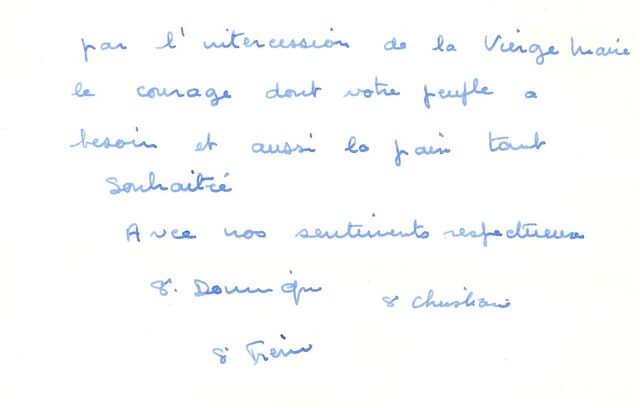 par l'intercession de la Vierge Marie
le courage dont votre peuple a
besoin et aussi la paix tant
souhaitée
Avec nos sentiments respectueux
Sr. Dominique Sr Christiane
Sr